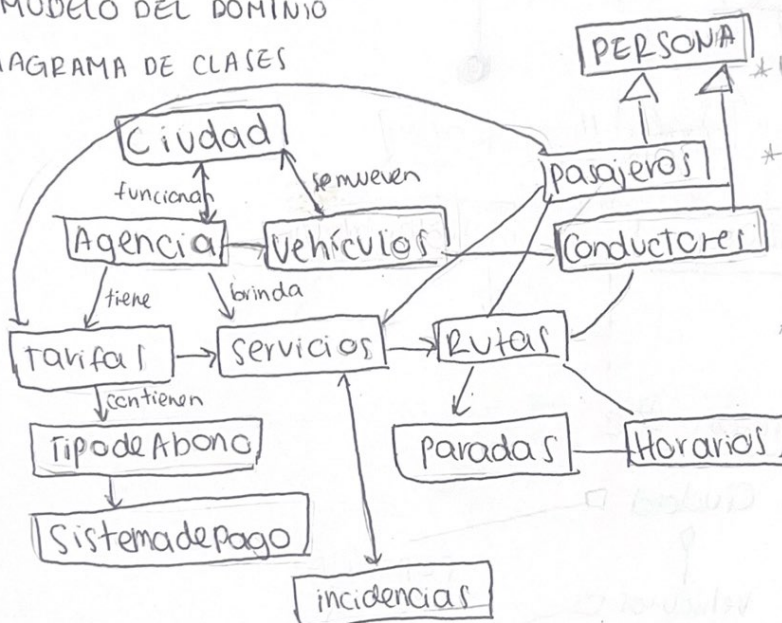 MODELO DEL DOMINIO
AGRAMA DE CLASES
PERSONA
Ciudad
funciona
se mueven
pasajeros
Agencia
Vehículos
Conductores
tiene
brinda
Tarifas
Servicios
Rutas
contienen
Tipo de Abono
Paradas
Horarios
Sistema de pago
incidencias